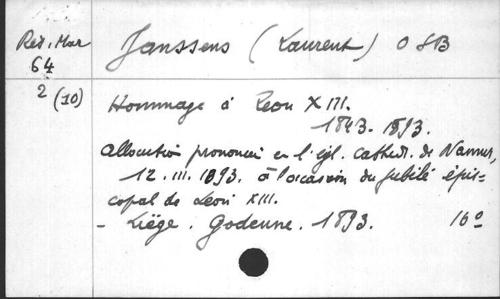 Red. Mar
64
2 (10)
Janssens (Laurent) OSB
Hommage à Leon XIII.
1843-1893.
Allocution prononcé en l'égl. cathedr. de Namur,
12.III.1893. à l'occasion du jubilé épis-
copal de Leon XIII.
- Liège. Godenne. 1893. 16°